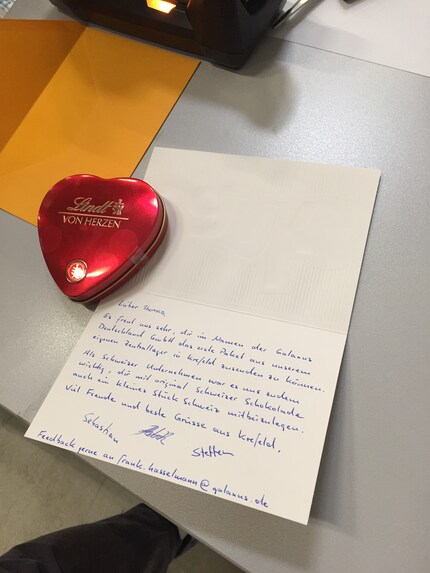 Lindt
VON HERZEN
Lieber Thomas,
Es freut uns sehr, dir im Namen der Galaxus
Deutschland GmbH das erste Paket aus unserem
eigenen Zentrallager in Krefeld zusenden zu können.
Als Schweizer Unternehmen war es uns zudem
wichtig, dir mit original Schweizer Schokolade
auch ein kleines Stück Schweiz mitbeizulegen.
Viel Freude und beste Grüsse aus Krefeld,
Sebastian Steffen
Feedback gerne an frank.hasselmann@galaxus.de